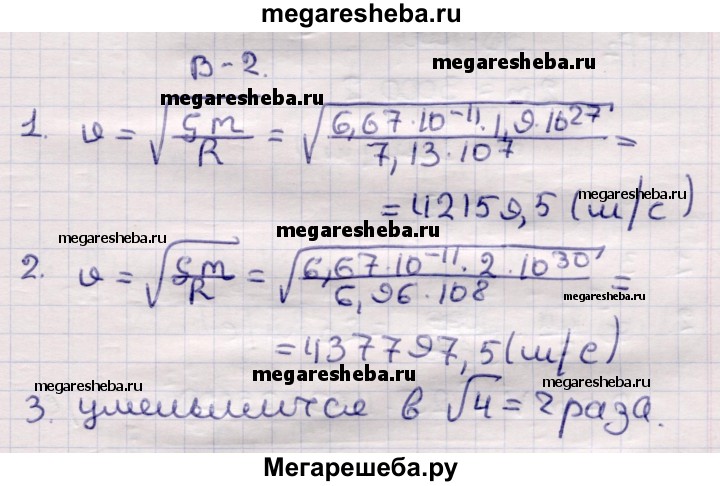 megaresheba.ru
В-2.
megaresheba.ru
megaresheba.ru
1. υ = √(Gm/R) = √(6,67·10⁻¹¹·1,9·10²⁷/7,13·10⁷) =
= 42159,5 (м/с)
megaresheba.ru
megaresheba.ru
megaresheba.ru
megaresheba.ru
2. υ = √(Gm/R) = √(6,67·10⁻¹¹·2·10³⁰/6,96·10⁸) =
megaresheba.ru
= 437797,5 (м/с)
megaresheba.ru
megaresheba.ru
3. уменьшится в √4 = 2 раза.
Мегарешеба.ру